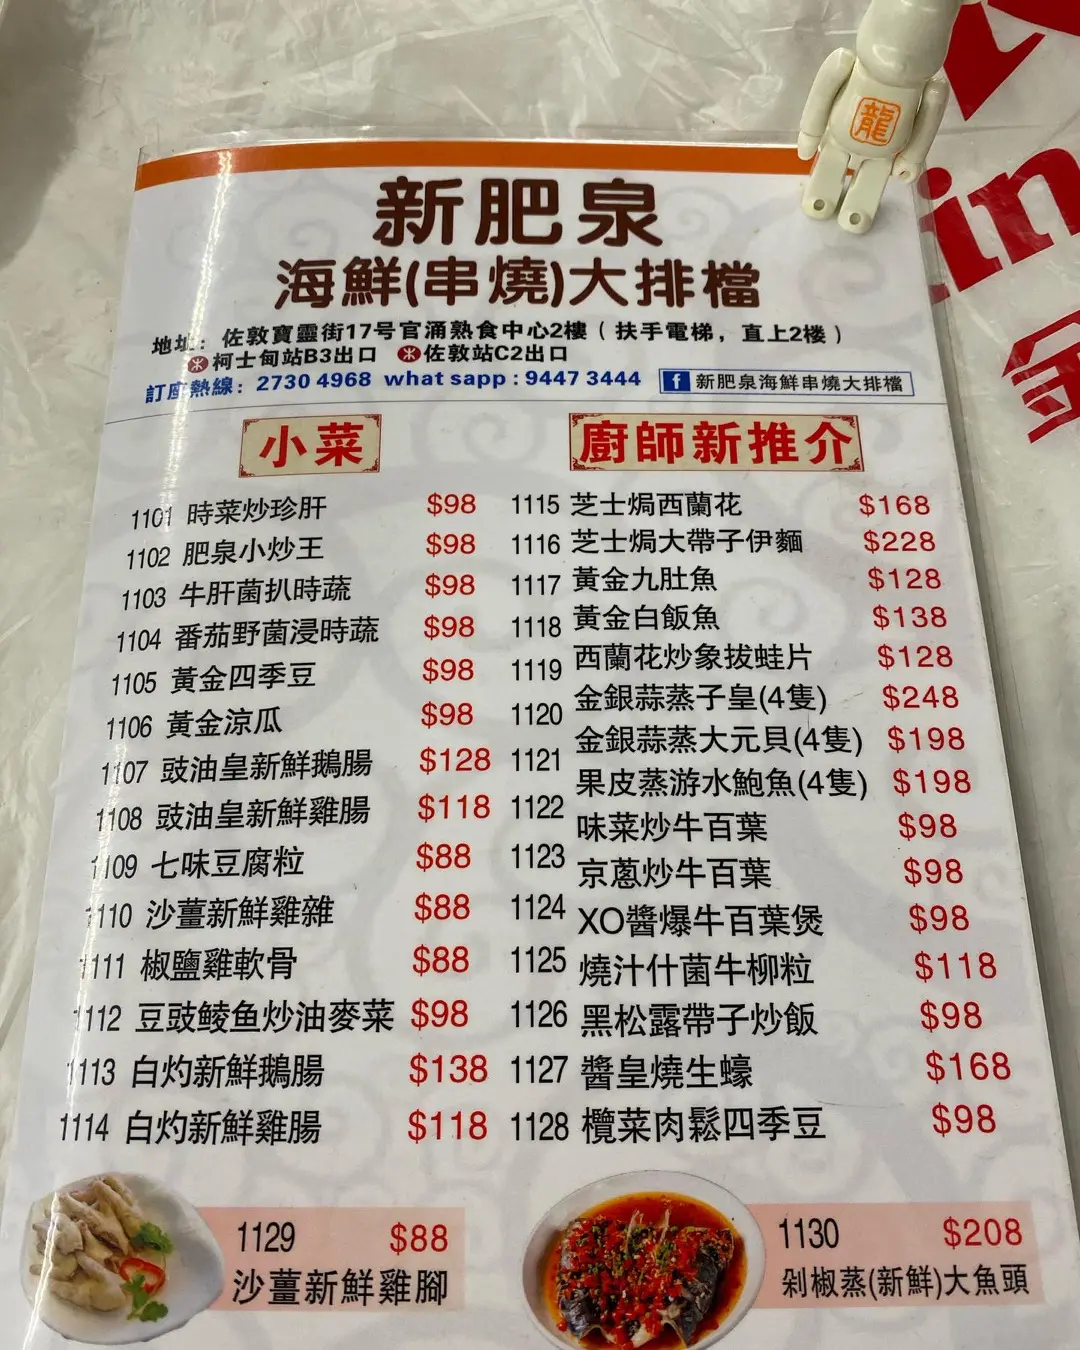 龍
in
新肥泉
海鮮(串燒)大排檔
地址：佐敦寶靈街17号官涌熟食中心2樓（扶手電梯，直上2楼）
柯士甸站B3出口 佐敦站C2出口
訂座熱線：2730 4968 what sapp : 9447 3444 f 新肥泉海鮮串燒大排檔
小菜
1101 時菜炒珍肝 $98
1102 肥泉小炒王 $98
1103 牛肝菌扒時蔬 $98
1104 番茄野菌浸時蔬 $98
1105 黃金四季豆 $98
1106 黃金涼瓜 $98
1107 豉油皇新鮮鵝腸 $128
1108 豉油皇新鮮雞腸 $118
1109 七味豆腐粒 $88
1110 沙薑新鮮雞雜 $88
1111 椒鹽雞軟骨 $88
1112 豆豉鲮鱼炒油麥菜 $98
1113 白灼新鮮鵝腸 $138
1114 白灼新鮮雞腸 $118
廚師新推介
1115 芝士焗西蘭花 $168
1116 芝士焗大帶子伊麵 $228
1117 黃金九肚魚 $128
1118 黃金白飯魚 $138
1119 西蘭花炒象拔蛙片 $128
1120 金銀蒜蒸子皇(4隻) $248
1121 金銀蒜蒸大元貝(4隻) $198
1122 果皮蒸游水鮑魚(4隻) $198
1123 味菜炒牛百葉 $98
1124 京蔥炒牛百葉 $98
1125 XO醬爆牛百葉煲 $98
1126 燒汁什菌牛柳粒 $118
1127 黑松露帶子炒飯 $98
1128 醬皇燒生蠔 $168
欖菜肉鬆四季豆 $98
1129 $88
沙薑新鮮雞腳
1130 $208
剁椒蒸(新鮮)大魚頭